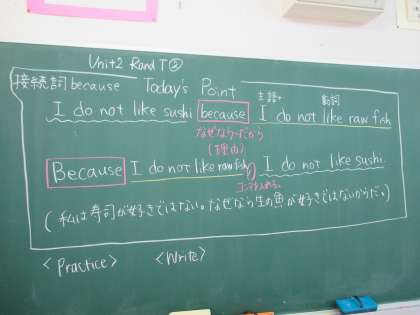 Unit2 Rand T②
接続詞 because Today's Point
主語+ 動詞
I do not like sushi because I do not like raw fish
なぜなら〜だから
(理由)
Because I do not like raw fish, I do not like sushi.
コンマを入れる。
(私は寿司が好きではない。なぜなら生の魚が好きではないからだ。)
<Practice> <Write>